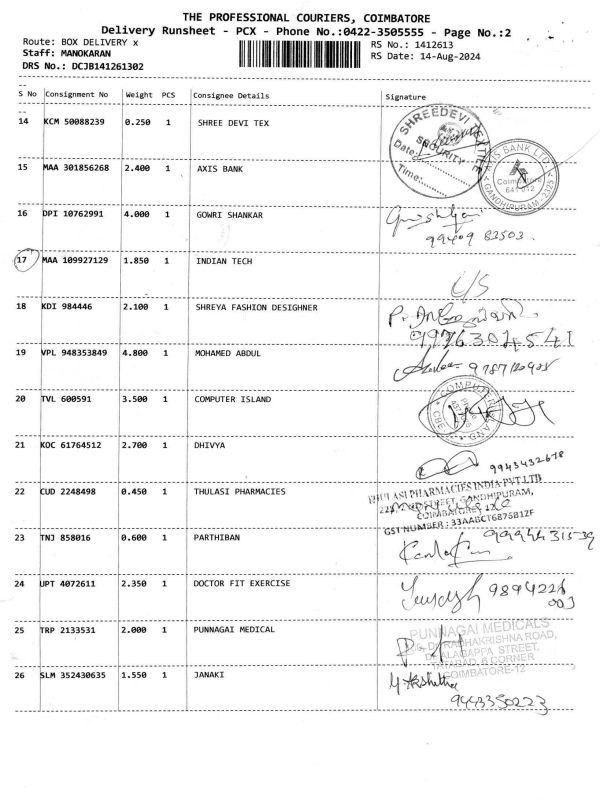 THE PROFESSIONAL COURIERS, COIMBATORE
Delivery Runsheet - PCX - Phone No.:0422-3505555 - Page No.:2
Route: BOX DELIVERY x
RS No.: 1412613
Staff: MANOKARAN
RS Date: 14-Aug-2024
DRS No.: DCJB141261302
S No Consignment No Weight PCS Consignee Details Signature
14 KCM 50088239 0.250 1 SHREE DEVI TEX
SHREEDEVI TEXTILE
SECURITY
Date:
Time:
15 MAA 301856268 2.400 1 AXIS BANK
AXIS BANK LTD
Coimbatore
641 012
GANDHIPURAM
16 DPI 10762991 4.000 1 GOWRI SHANKAR
99409 83503.
17 MAA 109927129 1.850 1 INDIAN TECH
18 KDI 984446 2.100 1 SHREYA FASHION DESIGHNER
19 VPL 948353849 4.800 1 MOHAMED ABDUL
20 TVL 600591 3.500 1 COMPUTER ISLAND
CBE
21 KOC 61764512 2.700 1 DHIVYA
9943432678
22 CUD 2248498 0.450 1 THULASI PHARMACIES
THULASI PHARMACIES INDIA PVT LTD
STREET, GANDHIPURAM,
COIMBATORE
GST NUMBER : 33AABCT6876B1ZF
23 TNJ 858016 0.600 1 PARTHIBAN
24 UPT 4072611 2.350 1 DOCTOR FIT EXERCISE
25 TRP 2133531 2.000 1 PUNNAGAI MEDICAL
PUNNAGAI MEDICALS
RADHAKRISHNA ROAD,
ALAGAPPA STREET,
TATABAD, 6 CORNER
COIMBATORE-12
26 SLM 352430635 1.550 1 JANAKI
9443350223